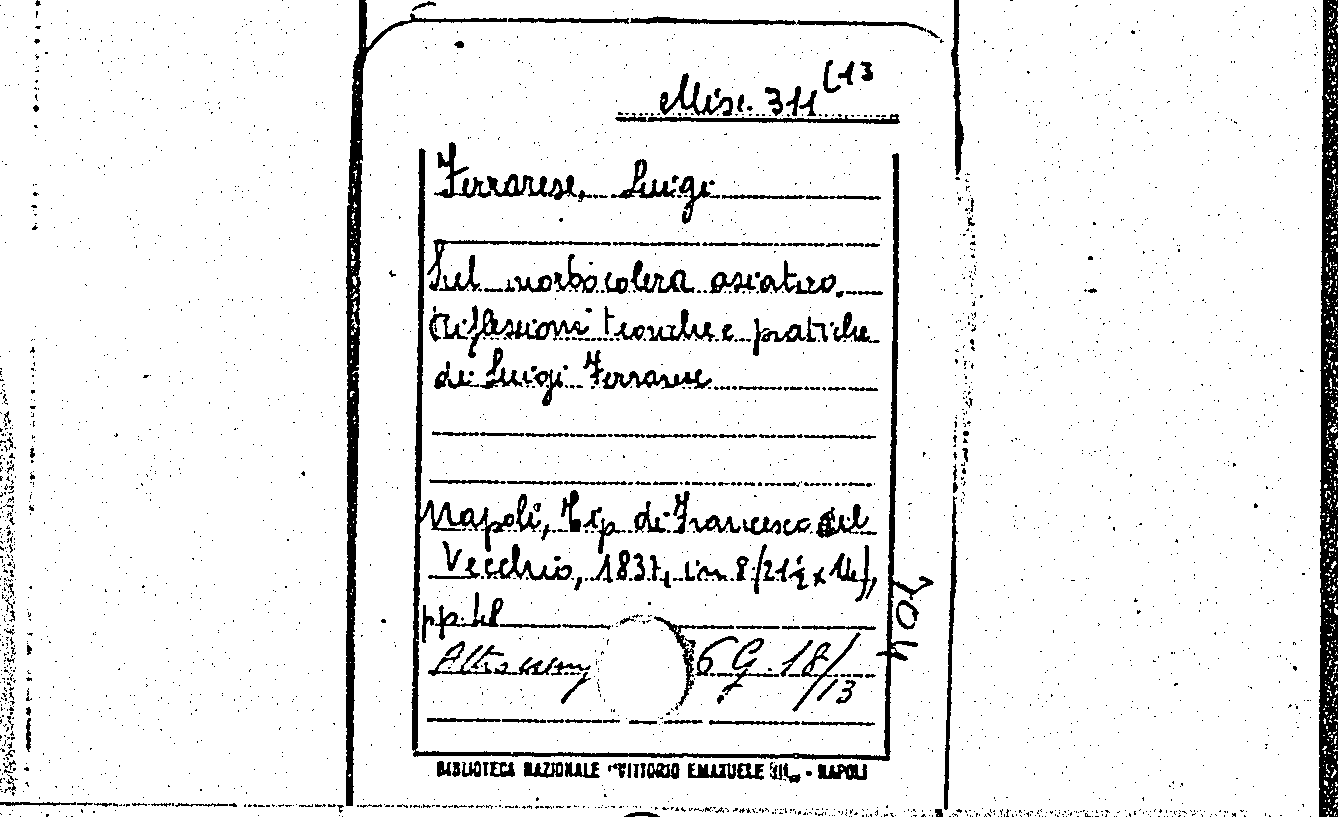 Misc. 311 (13
Ferrarese, Luigi
Sul morbo colera asiatico.
Riflessioni teoriche e pratiche
di Luigi Ferrarese
Napoli, Tip. di Francesco del
Vecchio, 1837, in 8 (21½ x 14),
pp. 48
Altro esemp 6 G. 18/13
704
BIBLIOTECA NAZIONALE "VITTORIO EMANUELE III" - NAPOLI